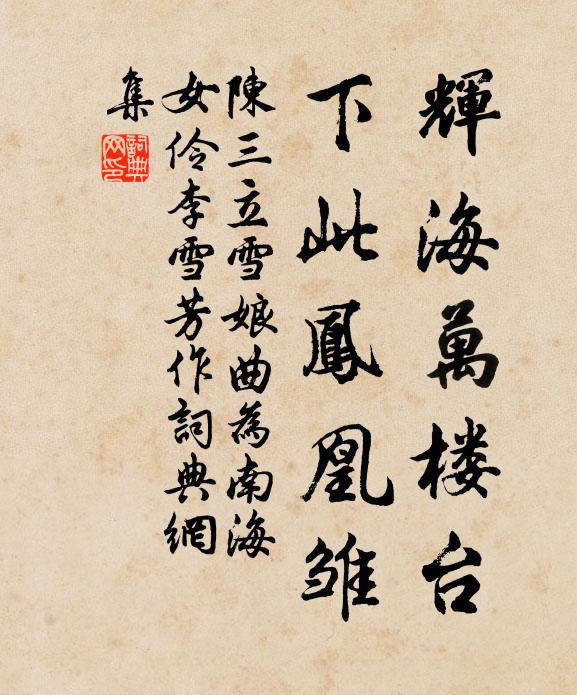 輝海萬楼台
下此鳳凰雏
陳三立雪娘曲為南海
女伶李雪芳作詞典網
集
詞典网印